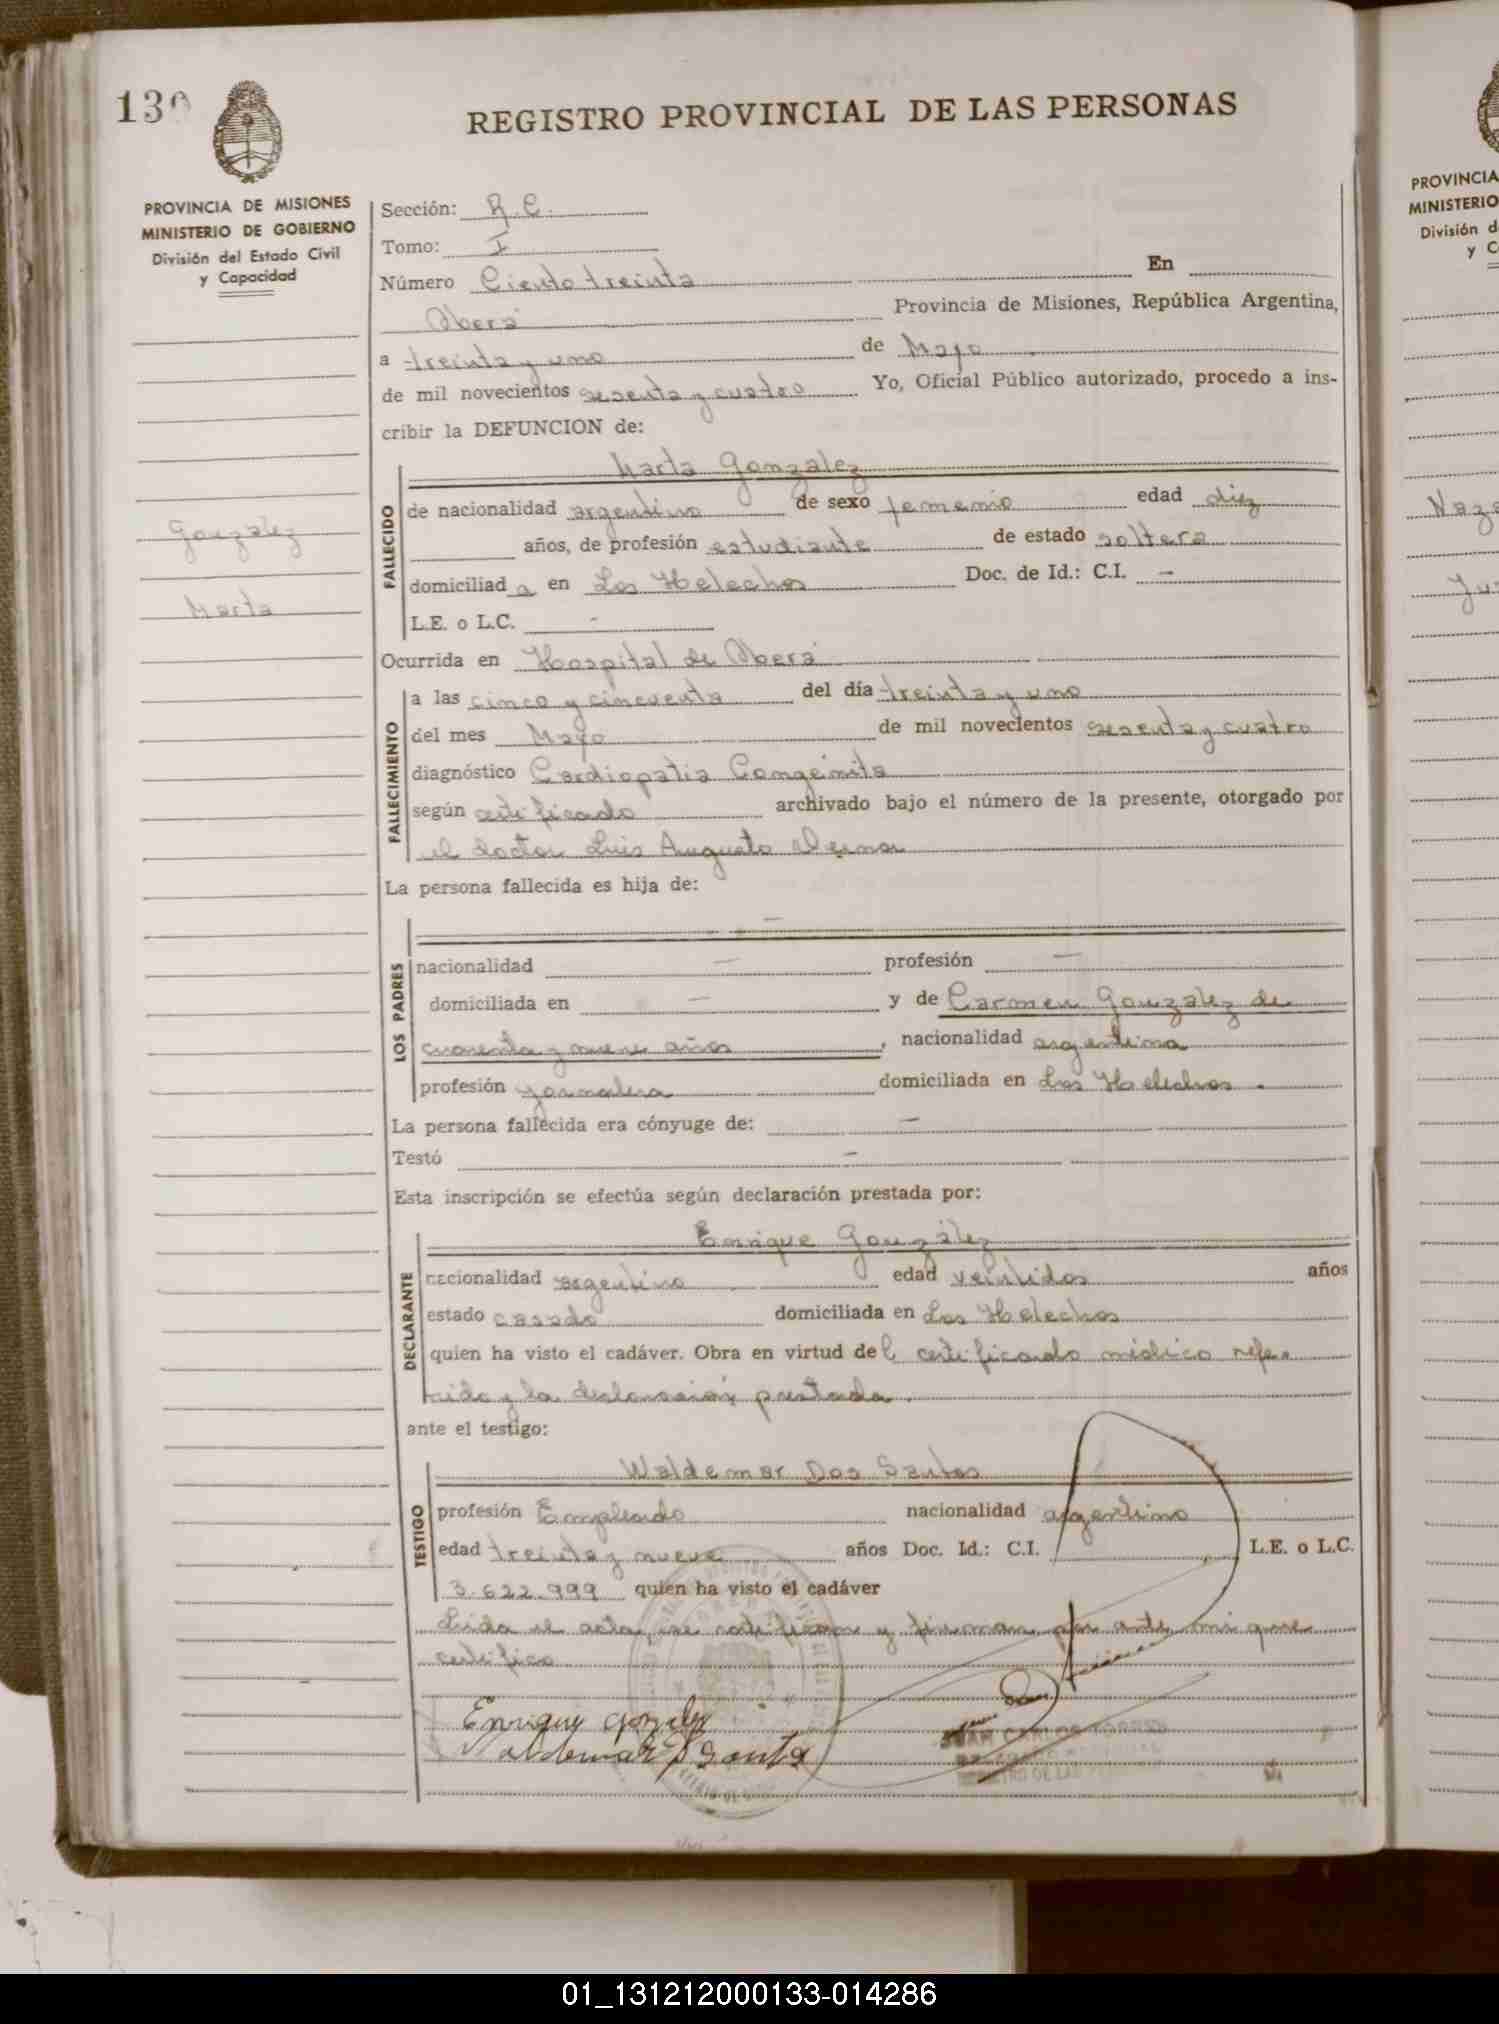 130
REGISTRO PROVINCIAL DE LAS PERSONAS
PROVINCIA DE MISIONES
MINISTERIO DE GOBIERNO
División del Estado Civil
y Capacidad
Gonzalez
Marta
Sección: R. C.
Tomo: I
Número Ciento treinta En
Oberá Provincia de Misiones, República Argentina,
a treinta y uno de Mayo
de mil novecientos sesenta y cuatro Yo, Oficial Público autorizado, procedo a ins-
cribir la DEFUNCION de:
Marta Gonzalez
FALLECIDO
de nacionalidad argentino de sexo femenio edad diez
años, de profesión estudiante de estado soltera
domiciliad a en Los Helechos Doc. de Id.: C.I. -
L.E. o L.C. -
Ocurrida en Hospital de Oberá
FALLECIMIENTO
a las cinco y cincuenta del día treinta y uno
del mes Mayo de mil novecientos sesenta y cuatro
diagnóstico Cardiopatia Congenita
según certificado archivado bajo el número de la presente, otorgado por
el doctor Luis Augusto
La persona fallecida es hija de:
-
LOS PADRES
nacionalidad - profesión -
domiciliada en - y de Carmen Gonzalez de
cuarenta y nueve años, nacionalidad argentina
profesión jornalera domiciliada en Los Helechos.
La persona fallecida era cónyuge de: -
Testó -
Esta inscripción se efectúa según declaración prestada por:
Enrique González
DECLARANTE
nacionalidad argentino edad veintidos años
estado casado domiciliada en Los Helechos
quien ha visto el cadáver. Obra en virtud del certificado médico refe-
rido y la declaración prestada.
ante el testigo:
Waldemar Dos Santos
TESTIGO
profesión Empleado nacionalidad argentino
edad treinta y nueve años Doc. Id.: C.I. L.E. o L.C.
3.622.999 quien ha visto el cadáver
Leida el acta, se ratifican y firman por ante mi que
certifico
Enrique Gonzalez
Waldemar D Santos
JUAN CARLOS TORRES
PROVINCIA
MINISTERIO
División d
y C
01_131212000133-014286